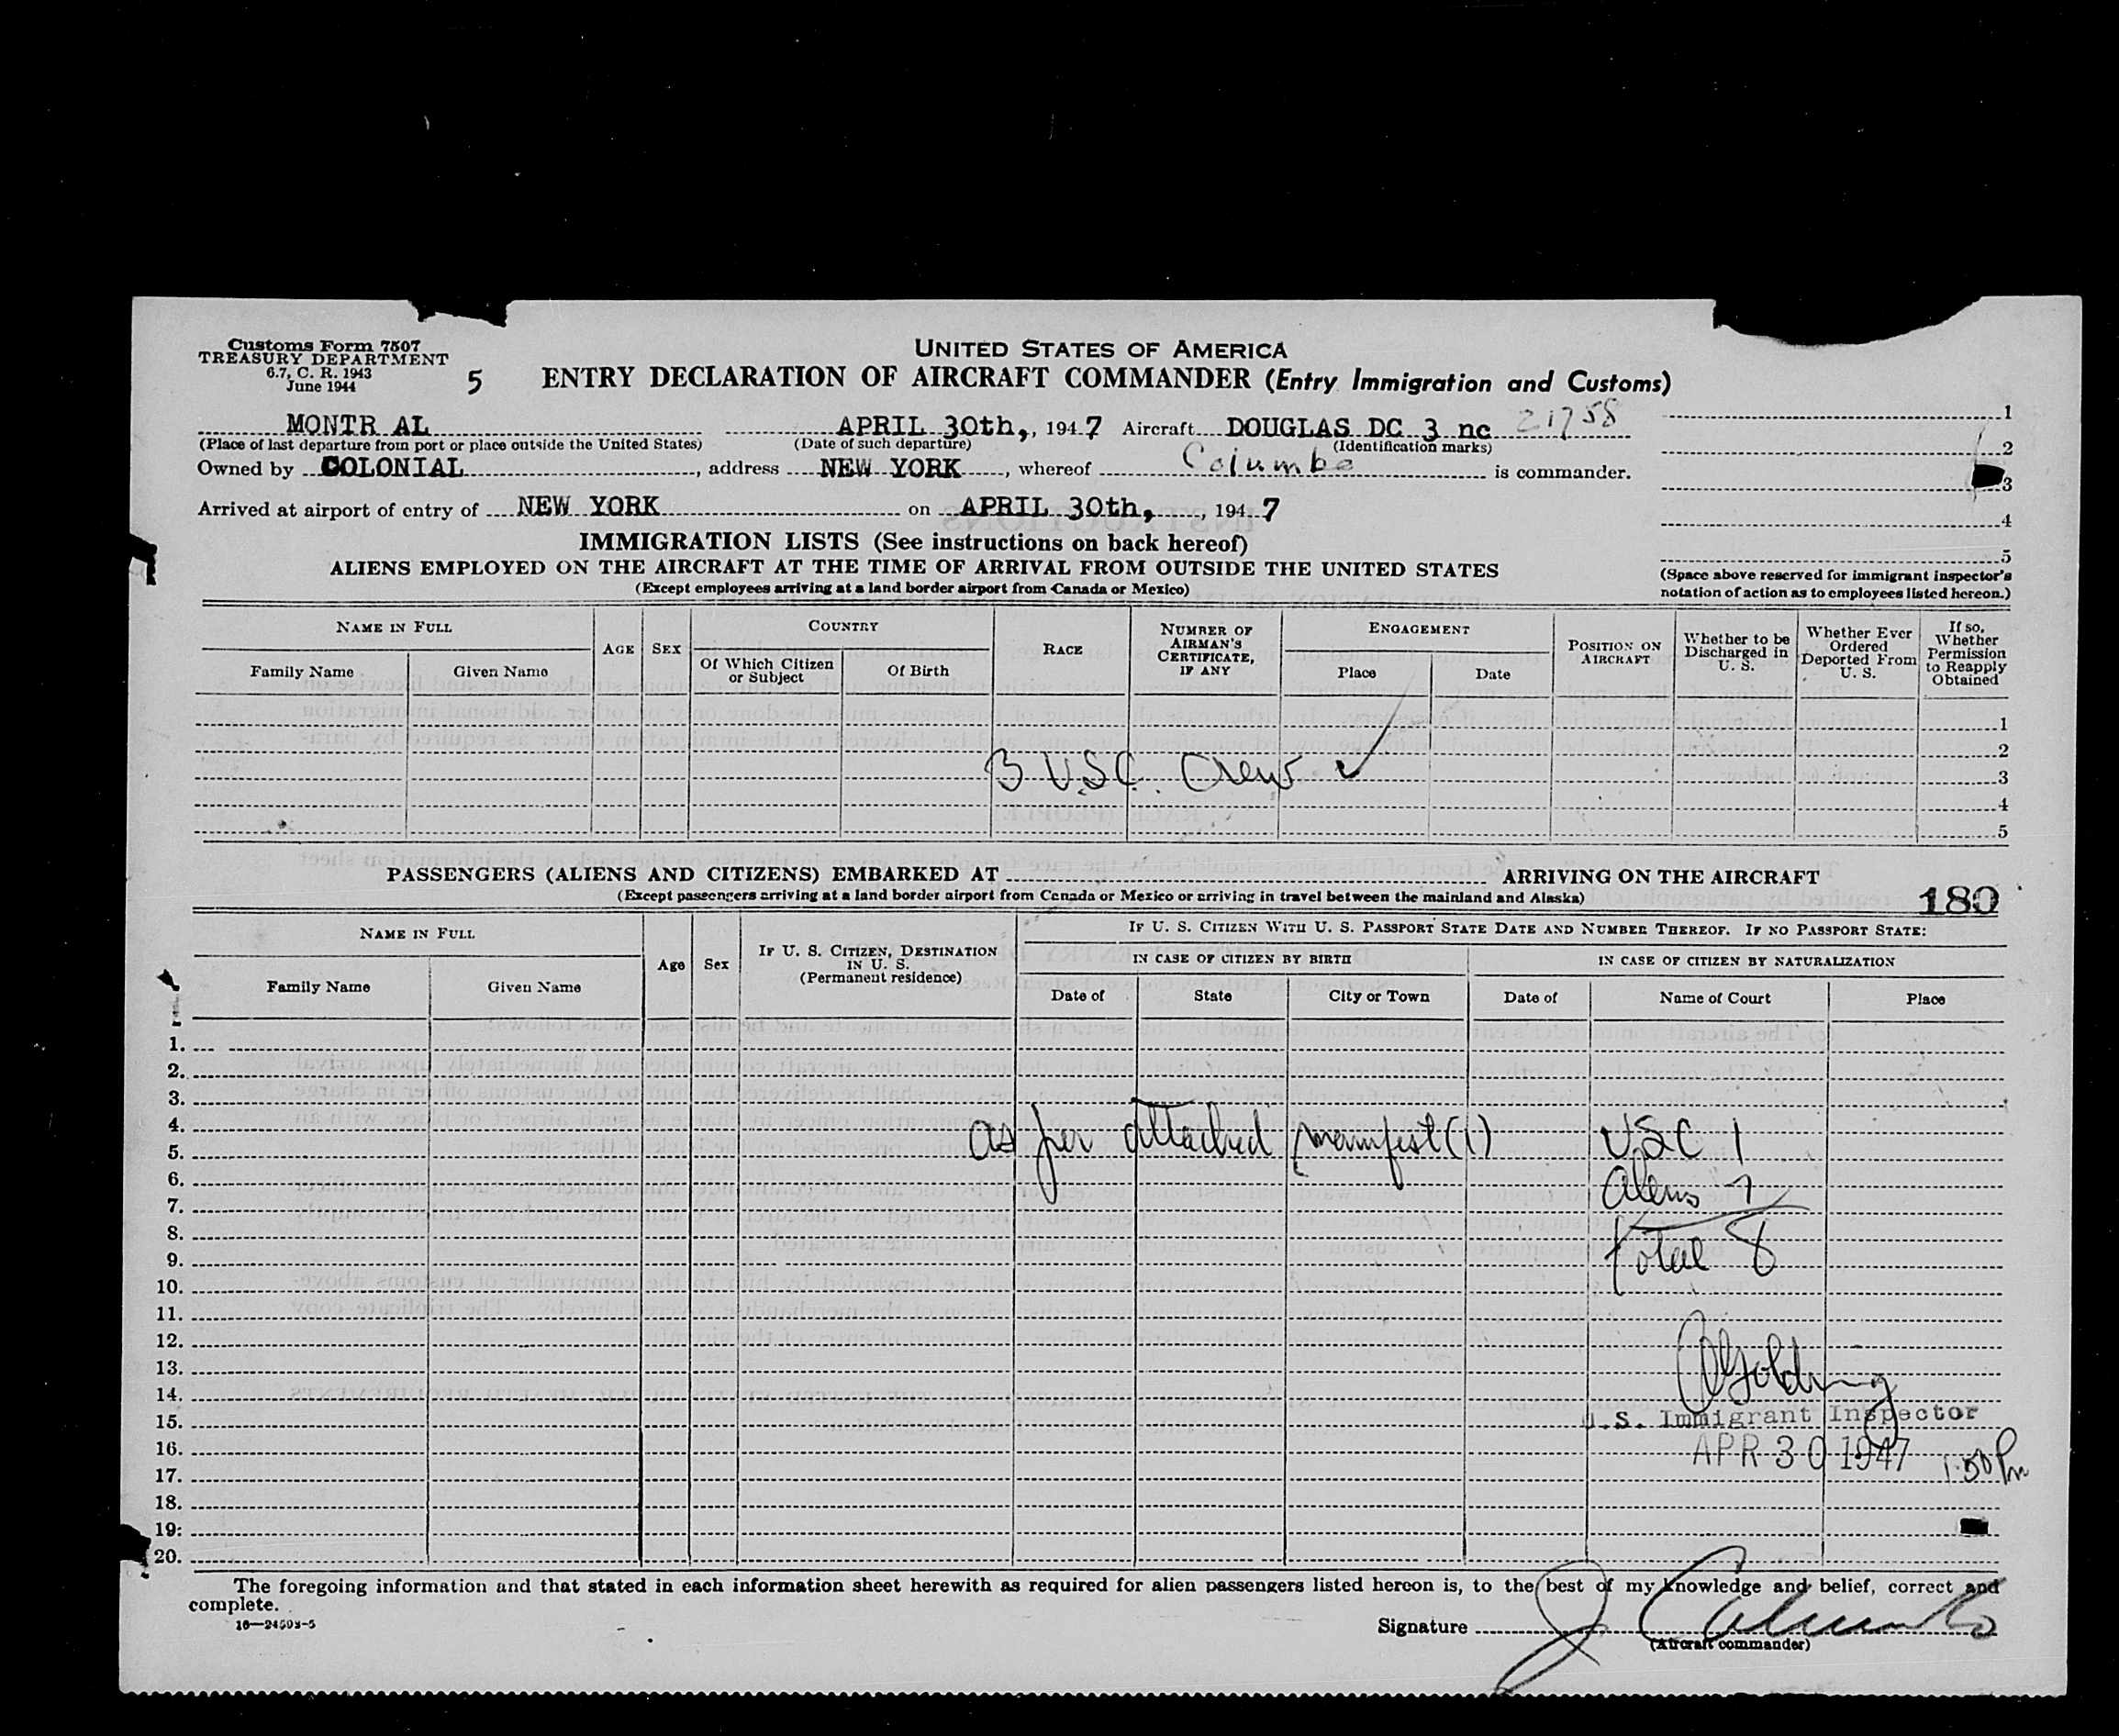 Customs Form 7507
TREASURY DEPARTMENT
6.7, C. R. 1943
June 1944
5
UNITED STATES OF AMERICA
ENTRY DECLARATION OF AIRCRAFT COMMANDER (Entry Immigration and Customs)
MONTR AL APRIL 30th, , 1947 Aircraft DOUGLAS DC 3 nc 21758
(Place of last departure from port or place outside the United States) (Date of such departure) (Identification marks)
Owned by COLONIAL , address NEW YORK , whereof is commander.
Arrived at airport of entry of NEW YORK on APRIL 30th, , 1947
1
2
3
4
5
(Space above reserved for immigrant inspector's
notation of action as to employees listed hereon.)
IMMIGRATION LISTS (See instructions on back hereof)
ALIENS EMPLOYED ON THE AIRCRAFT AT THE TIME OF ARRIVAL FROM OUTSIDE THE UNITED STATES
(Except employees arriving at a land border airport from Canada or Mexico)
NAME IN FULL
Family Name
Given Name
AGE
SEX
COUNTRY
Of Which Citizen or Subject
Of Birth
RACE
NUMBER OF AIRMAN'S CERTIFICATE, IF ANY
ENGAGEMENT
Place
Date
POSITION ON AIRCRAFT
Whether to be Discharged in U. S.
Whether Ever Ordered Deported From U. S.
If so, Whether Permission to Reapply Obtained
1
2
3 U.S.C. Crew
3
4
5
PASSENGERS (ALIENS AND CITIZENS) EMBARKED AT ARRIVING ON THE AIRCRAFT
(Except passengers arriving at a land border airport from Canada or Mexico or arriving in travel between the mainland and Alaska)
180
NAME IN FULL
Family Name
Given Name
Age
Sex
IF U. S. CITIZEN, DESTINATION IN U. S.
(Permanent residence)
IF U. S. CITIZEN WITH U. S. PASSPORT STATE DATE AND NUMBER THEREOF. IF NO PASSPORT STATE:
IN CASE OF CITIZEN BY BIRTH
Date of
State
City or Town
IN CASE OF CITIZEN BY NATURALIZATION
Date of
Name of Court
Place
1.
2.
3.
4.
as per attached manifest (1) USC 1
5.
6.
Aliens 7
7.
8.
Total 8
9.
10.
11.
12.
13.
Golding
14.
15.
U.S. Immigrant Inspector
16.
APR 30 1947 1:50 Pm
17.
18.
19.
20.
The foregoing information and that stated in each information sheet herewith as required for alien passengers listed hereon is, to the best of my knowledge and belief, correct and
complete.
16—24508-5
Signature
(Aircraft commander)